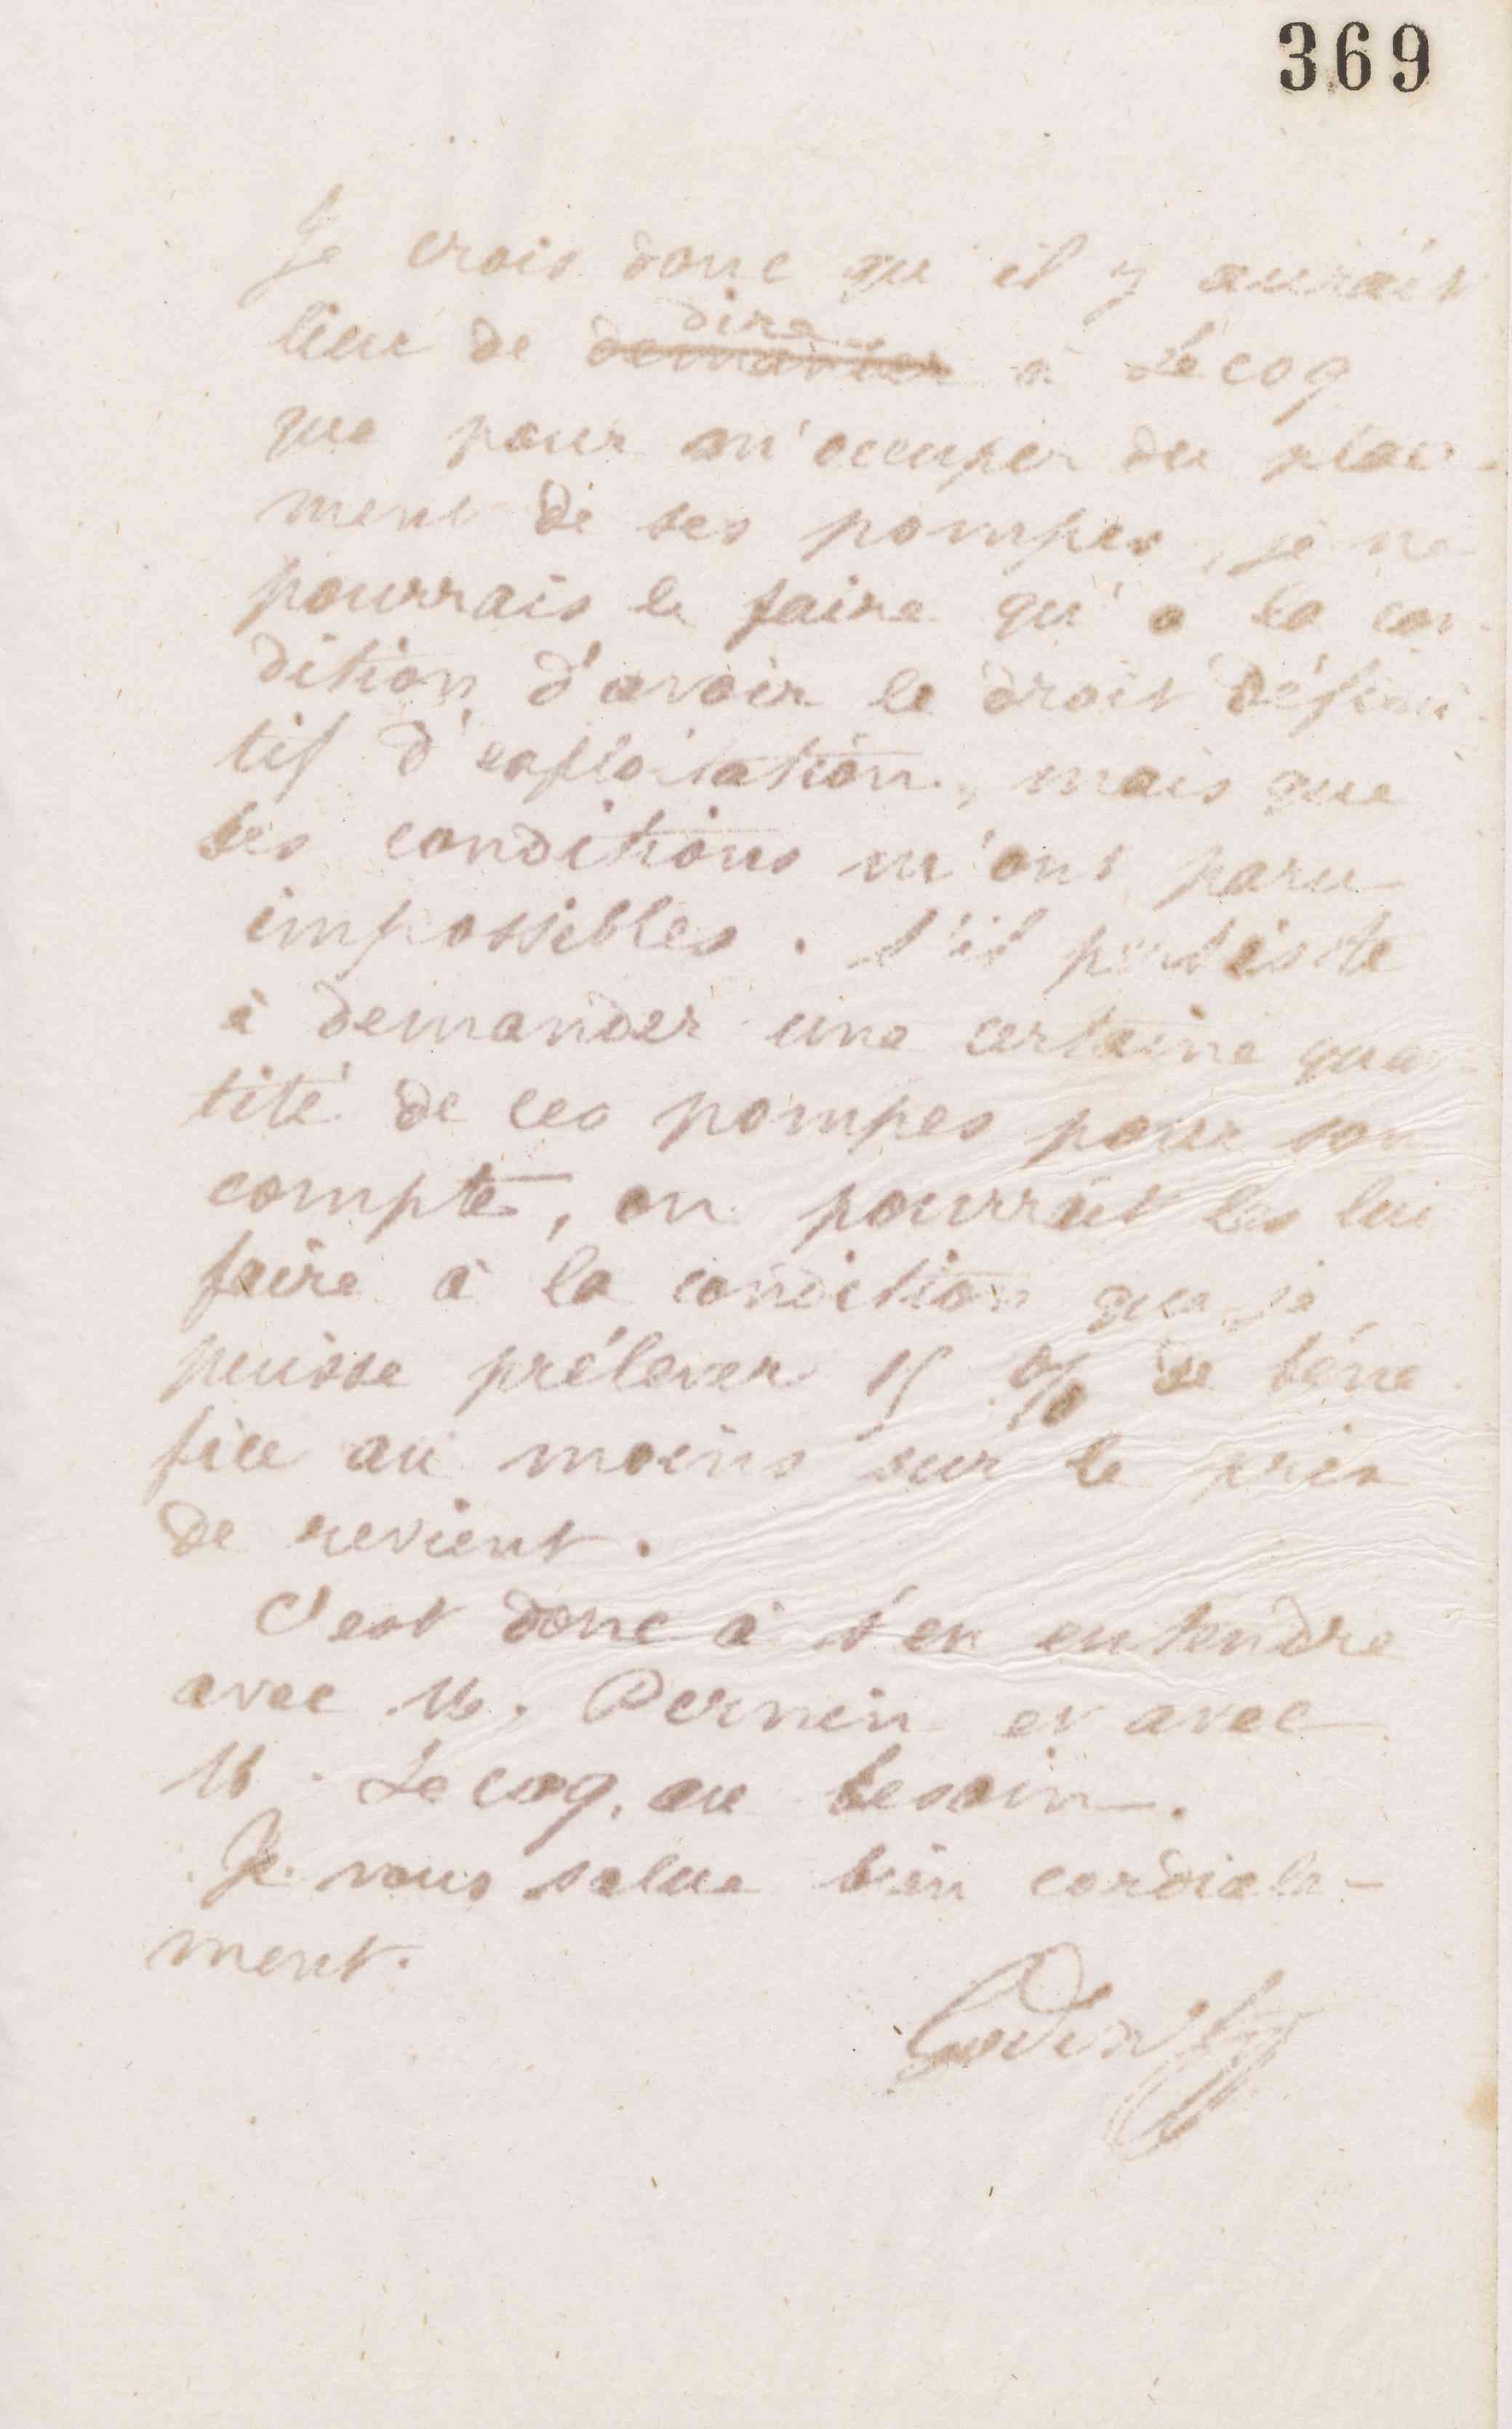 369
Je crois donc qu'il y aurait
lieu de ~~demander~~ dire à Lecoq
que pour m'occuper du place-
ment de ses pompes, je ne
pourrais le faire qu'à la con-
dition d'avoir le droit défini-
tif d'exploitation, mais que
ses conditions m'ont paru
impossibles. S'il persiste
à demander une certaine quan-
tité de ces pompes pour son
compte, on pourrait les lui
faire à la condition que je
puisse prélever 15 % de béné-
fice au moins sur le prix
de revient.
C'est donc à s'en entendre
avec M. Pernin et avec
M. Lecoq, au besoin.
Je vous salue bien cordiale-
ment.
Godin